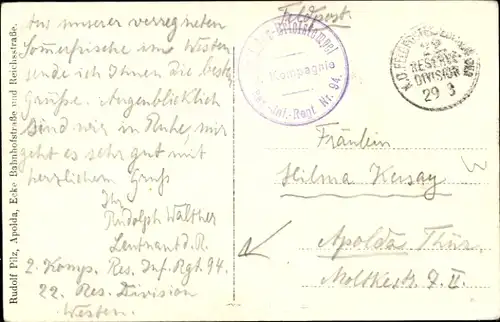 Rudolf Pilz, Apolda, Ecke Bahnhofstraße und Reichsstraße.
unserer verregneten
Sommerfrische im Westen
sende ich Ihnen die besten
Grüße. Augenblicklich
sind wir in Ruhe, mir
geht es sehr gut mit
herzlichem Gruß
Ihr
Rudolph Walther
Leutnant d. R.
2. Komp. Res. Inf. Rgt. 94.
22. Res. Division
Westen.
Feldpost.
Briefstempel
Kompagnie
Res.-Inf.-Regt. Nr. 94.
RESERVE
DIVISION
29 3
Fräulein
Hilma
Apolda Thür.
Moltkestr. 7. II.